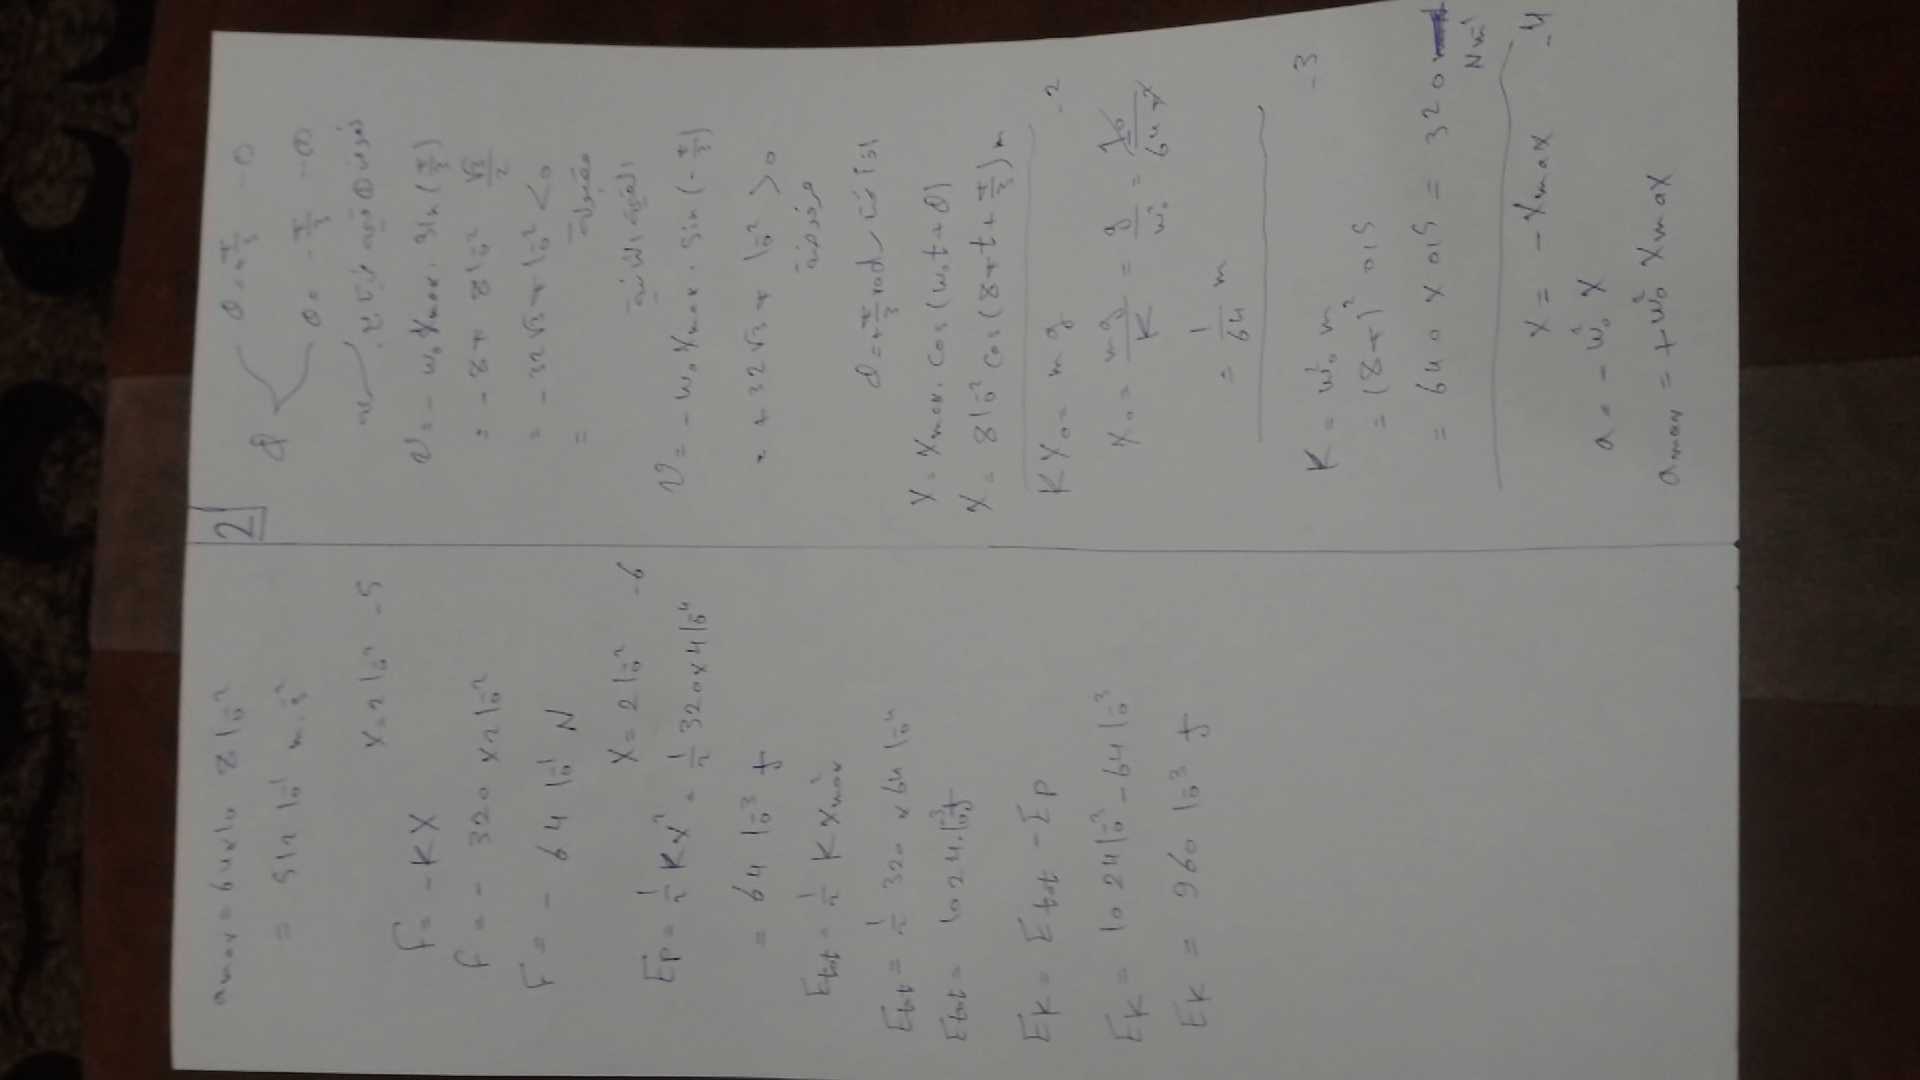 2
θ = +π/3 -①
θ
θ = -π/3 -②
v = - w₀ Xmax . sin(π/3)
= - 8π 8 10⁻² √3/2
= - 32√3 π 10⁻² < 0
=
v = - w₀ Xmax . sin(-π/3)
= +32√3 π 10⁻² > 0
θ = +π/3 rad
X = Xmax . cos(w₀t + θ)
X = 8 10⁻² cos(8πt + π/3) m
KX₀ = mg -2
X₀ = mg/K = g/w₀² = 10/64π²
= 1/64 m
K = w₀² m -3
= (8π)² 0,5
= 640 x 0,5 = 320
Nm⁻¹
X = - Xmax -4
a = - w₀² X
amax = + w₀² Xmax
amax = 64x10 8 10⁻²
= 512 10⁻¹ m.s⁻²
X = 2 10⁻² -5
F = - KX
F = - 320 x 2 10⁻²
F = - 64 10⁻¹ N
X = 2 10⁻² -6
Ep = 1/2 KX² = 1/2 320 x 4 10⁻⁴
= 64 10⁻³ J
Etot = 1/2 K X²max
Etot = 1/2 320 x 64 10⁻⁴
Etot = 1024.10⁻³ J
EK = Etot - EP
EK = 1024 10⁻³ - 64 10⁻³
EK = 960 10⁻³ J